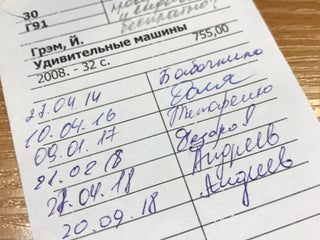 30
Г91
бесплатно?
Грэм, Й.
Удивительные машины
2008. - 32 с. 755,00
27.04 14
10.04.16 Доля
09.01.17 Титаренко
21.02 18 Федоров
21.04.18 Андреев
20.09.18 Андреев